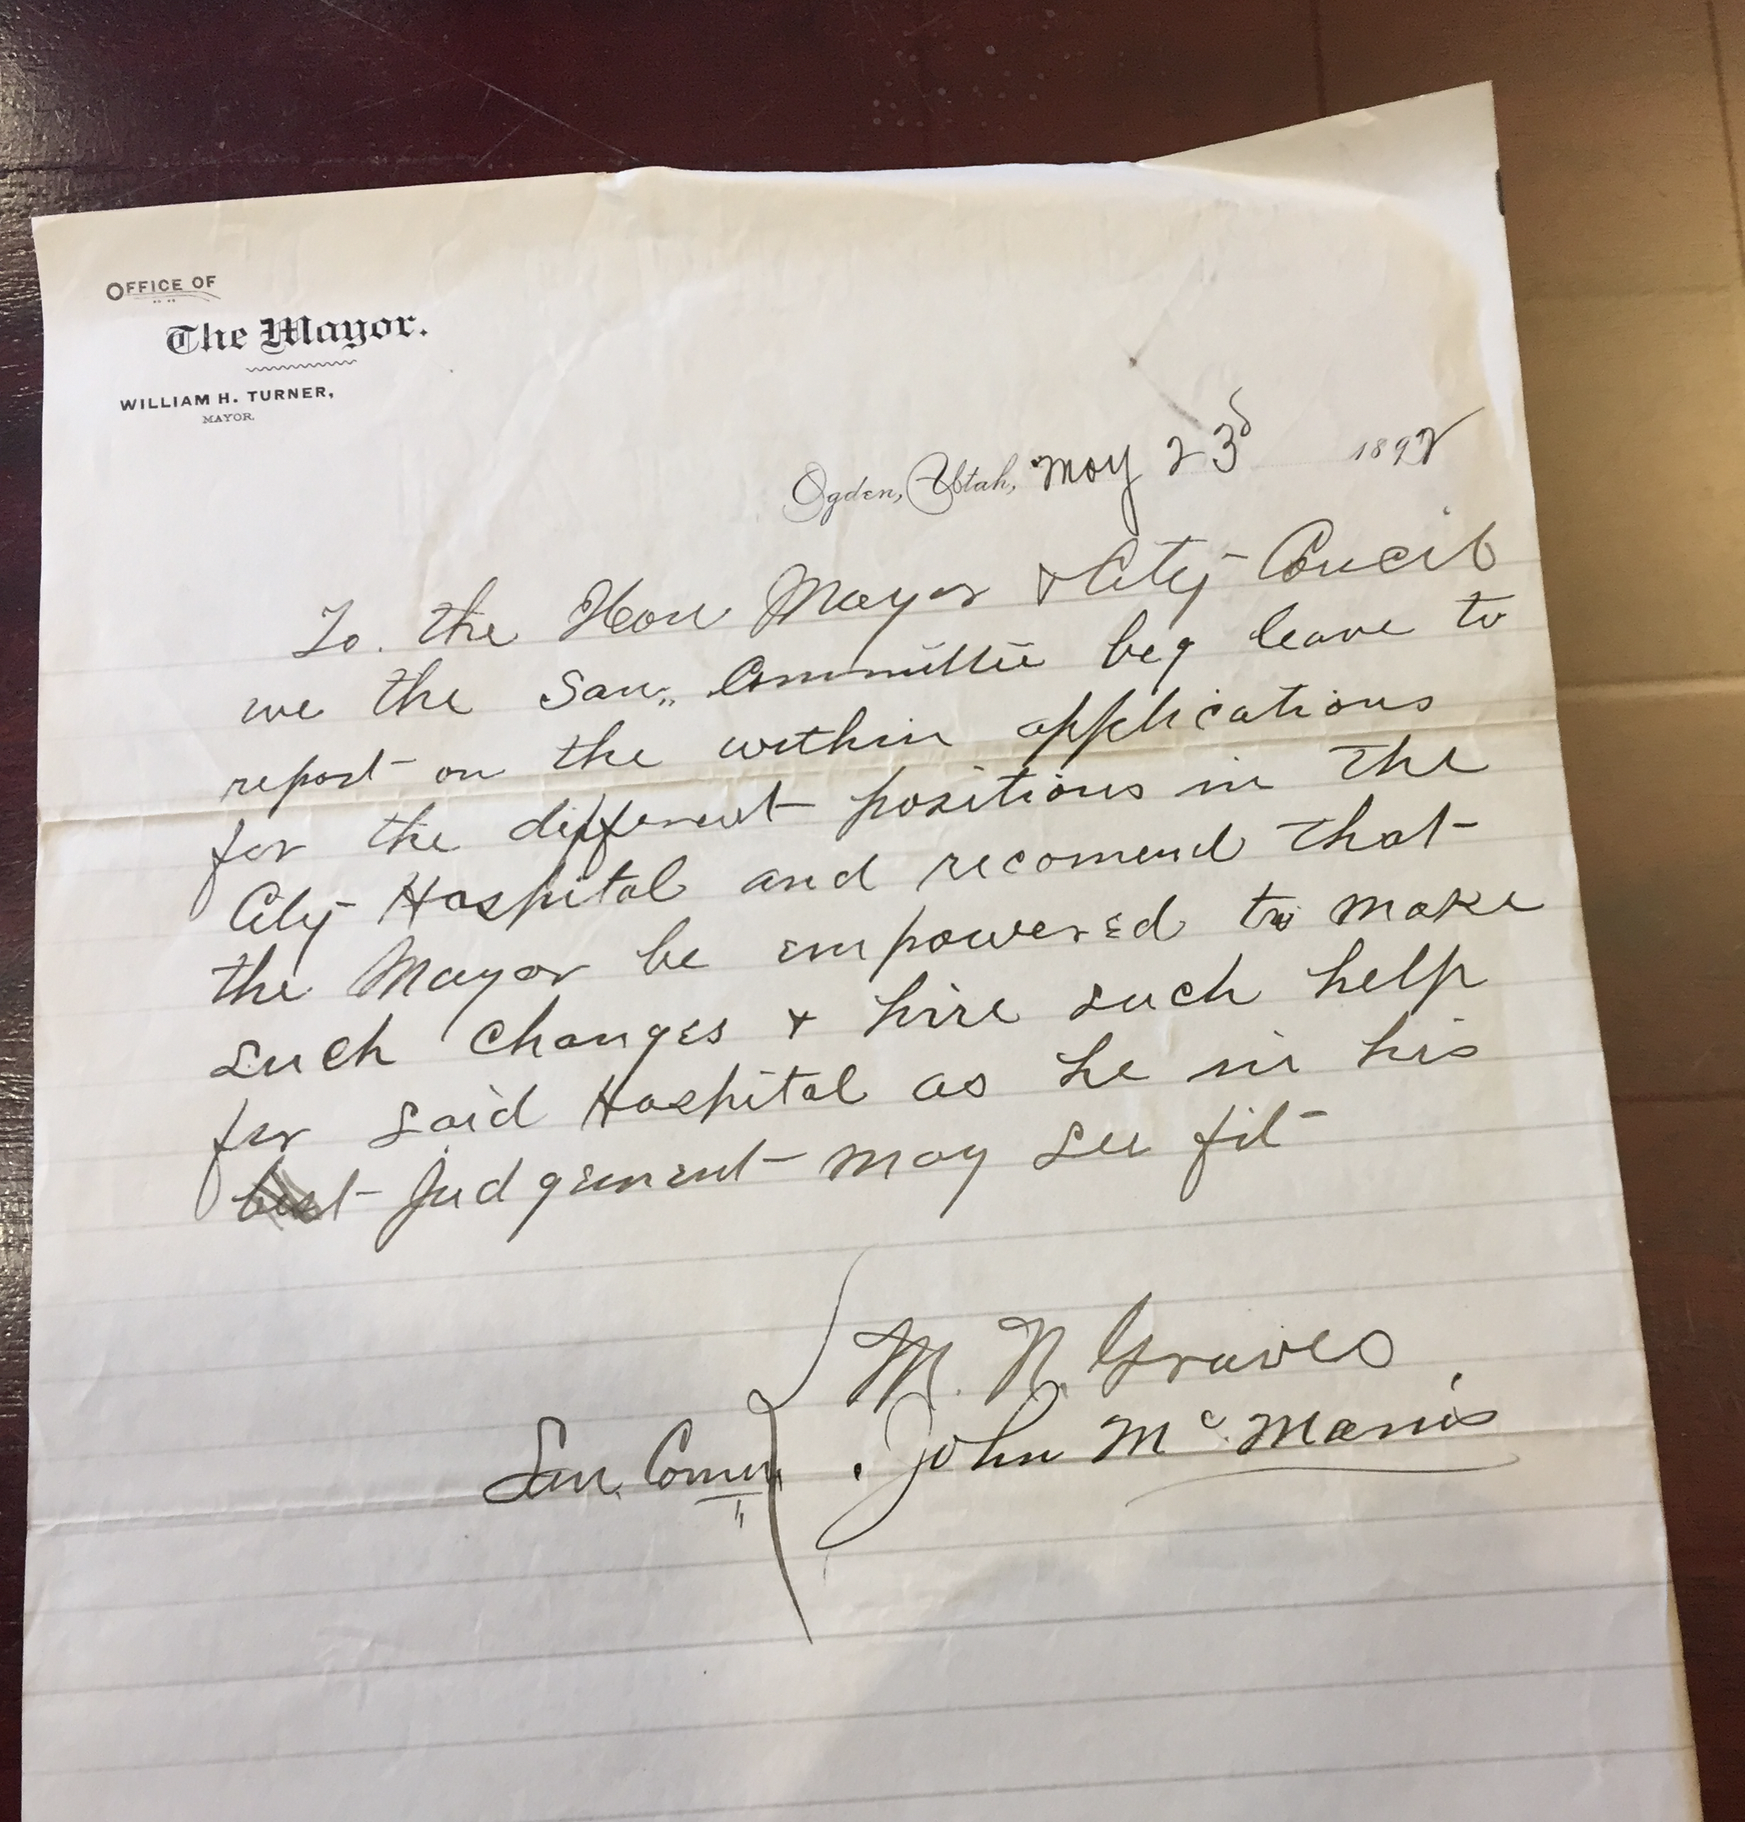 OFFICE OF
The Mayor.
WILLIAM H. TURNER,
MAYOR.
Ogden, Utah, May 23d 1892
To. the Hon Mayor & City Coucil
we the San,, Committee beg leave to
report on the within applications
for the different positions in the
City Hospital and recomend that
the Mayor be empowered to make
such changes & hire such help
for said Hospital as he in his
best judgement may see fit
M. N. Graves
San. Com John Mc Manis